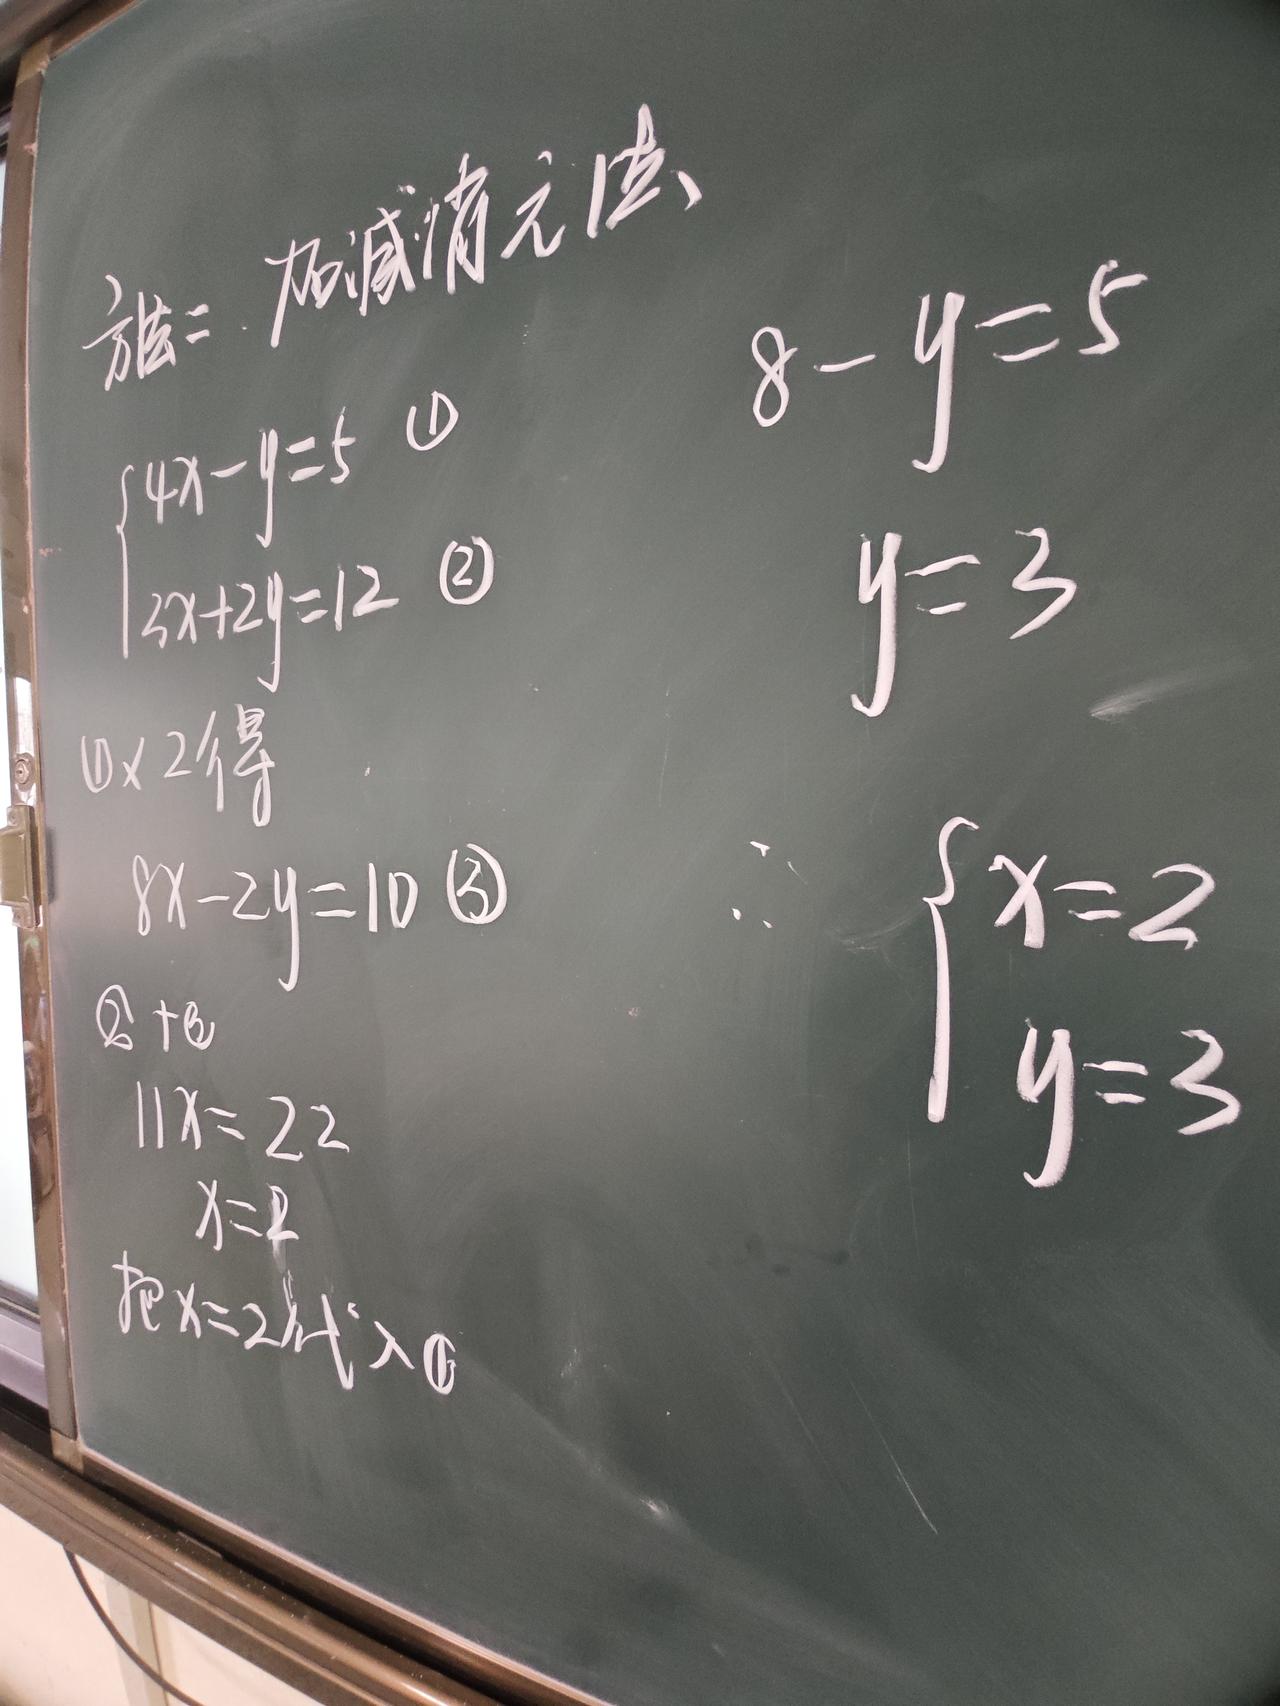 方法二 加减消元法
{4x-y=5 ①
3x+2y=12 ②
①×2得
8x-2y=10 ③
②+③
11x=22
x=2
把x=2代入①
8-y=5
y=3
∴ {x=2
y=3